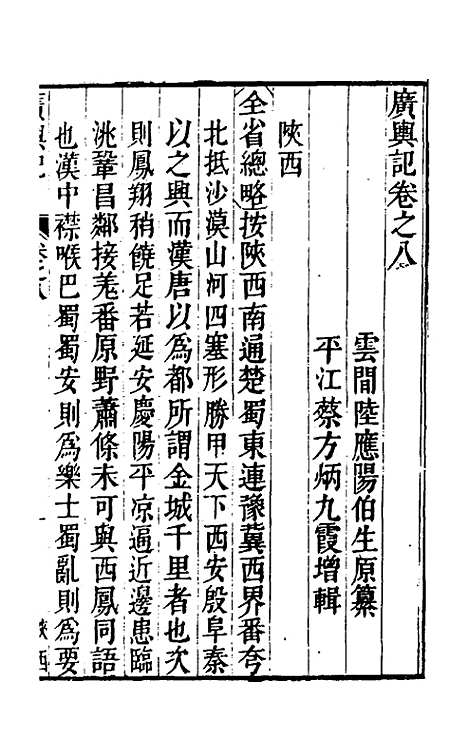 廣輿記卷之八
雲間陸應陽伯生原纂
平江蔡方炳九霞增輯
陜西
全省總略按陜西南通楚蜀東連豫冀西界番夸
北抵沙漠山河四塞形勝甲天下西安殷阜秦
以之興而漢唐以爲都所謂金城千里者也次
則鳳翔稍饒足若延安慶陽平凉逼近邊患臨
洮鞏昌鄰接羗番原野蕭條未可與西鳳同語
也漢中襟喉巴蜀蜀安則爲樂士蜀亂則爲要
廣輿記
卷之八
一
陜西